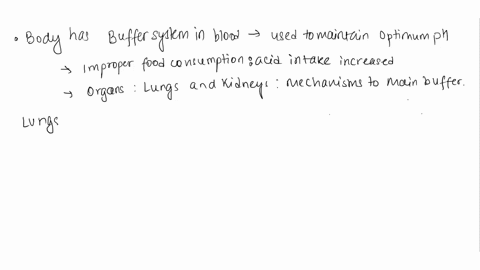 • Body has Buffer system in blood → used to maintain optimum pH
→ improper food consumption; acid intake increased
→ organs : Lungs and Kidneys : mechanisms to main buffer.
Lungs